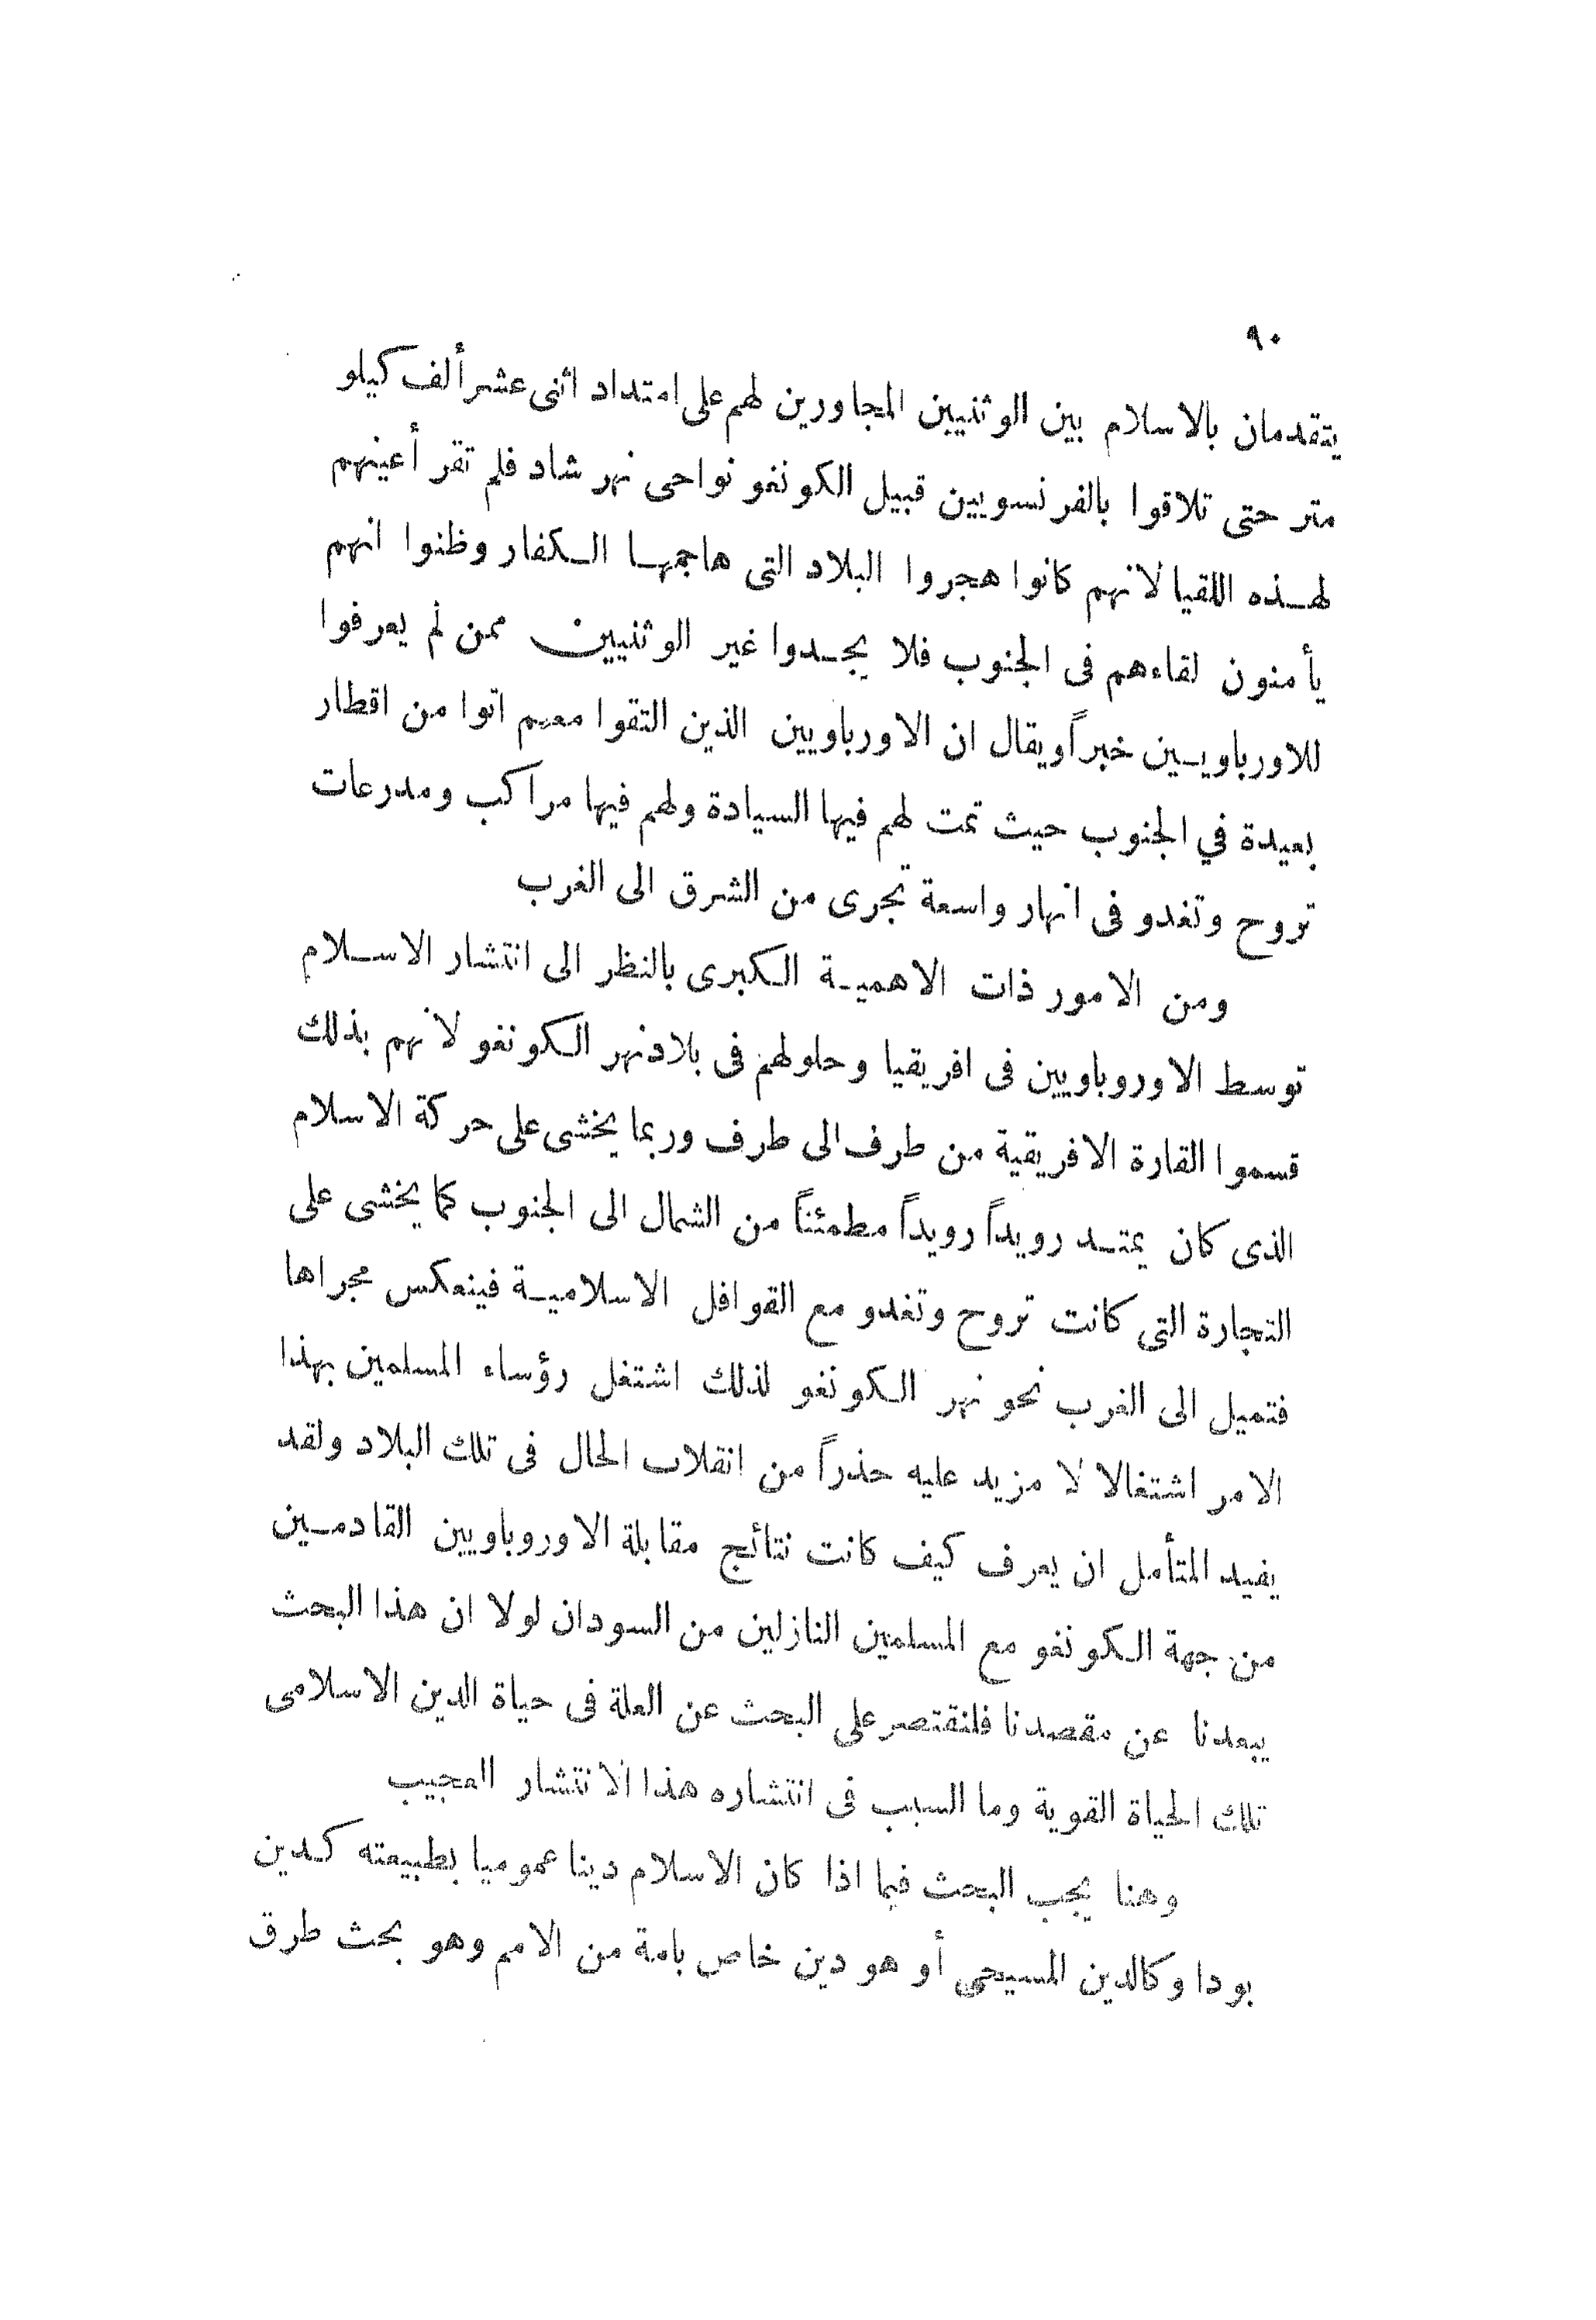 ٩٠
يتقدمان بالاسلام بين الوثنيين المجاورين لهم على امتداد اثنى عشر ألف كيلو
متر حتى تلاقوا بالفرنسويين قبيل الكونغو نواحى نهر شاد فلم تقر أعينهم
لهذه اللقيا لانهم كانوا هجروا البلاد التى هاجمها الكفار وظنوا انهم
يأمنون لقاءهم فى الجنوب فلا يجدوا غير الوثنيين ممن لم يعرفوا
للاورباويين خبراً ويقال ان الاورباويين الذين التقوا معهم اتوا من اقطار
بعيدة في الجنوب حيث تمت لهم فيها السيادة ولهم فيها مراكب ومدرعات
تروح وتغدو فى انهار واسعة تجرى من الشرق الى الغرب
ومن الامور ذات الاهمية الكبرى بالنظر الى انتشار الاسلام
توسط الاوروباويين فى افريقيا وحلولهم فى بلاد نهر الكونغو لانهم بذلك
قسموا القارة الافريقية من طرف الى طرف وربما يخشى على حركة الاسلام
الذى كان يمتد رويداً رويداً مطمئناً من الشمال الى الجنوب كما يخشى على
التجارة التى كانت تروح وتغدو مع القوافل الاسلامية فينعكس مجراها
فتميل الى الغرب نحو نهر الكونغو لذلك اشتغل رؤساء المسلمين بهذا
الامر اشتغالا لا مزيد عليه حذراً من انقلاب الحال فى تلك البلاد ولقد
يفيد المتأمل ان يعرف كيف كانت نتائج مقابلة الاوروباويين القادمين
من جهة الكونغو مع المسلمين النازلين من السودان لولا ان هذا البحث
يبعدنا عن مقصدنا فلنقتصر على البحث عن العلة فى حياة الدين الاسلامى
تلك الحياة القوية وما السبب فى انتشاره هذا الانتشار العجيب
وهنا يجب البحث فيما اذا كان الاسلام دينا عموميا بطبيعته كدين
بودا وكالدين المسيحى أو هو دين خاص بامة من الامم وهو بحث طرق